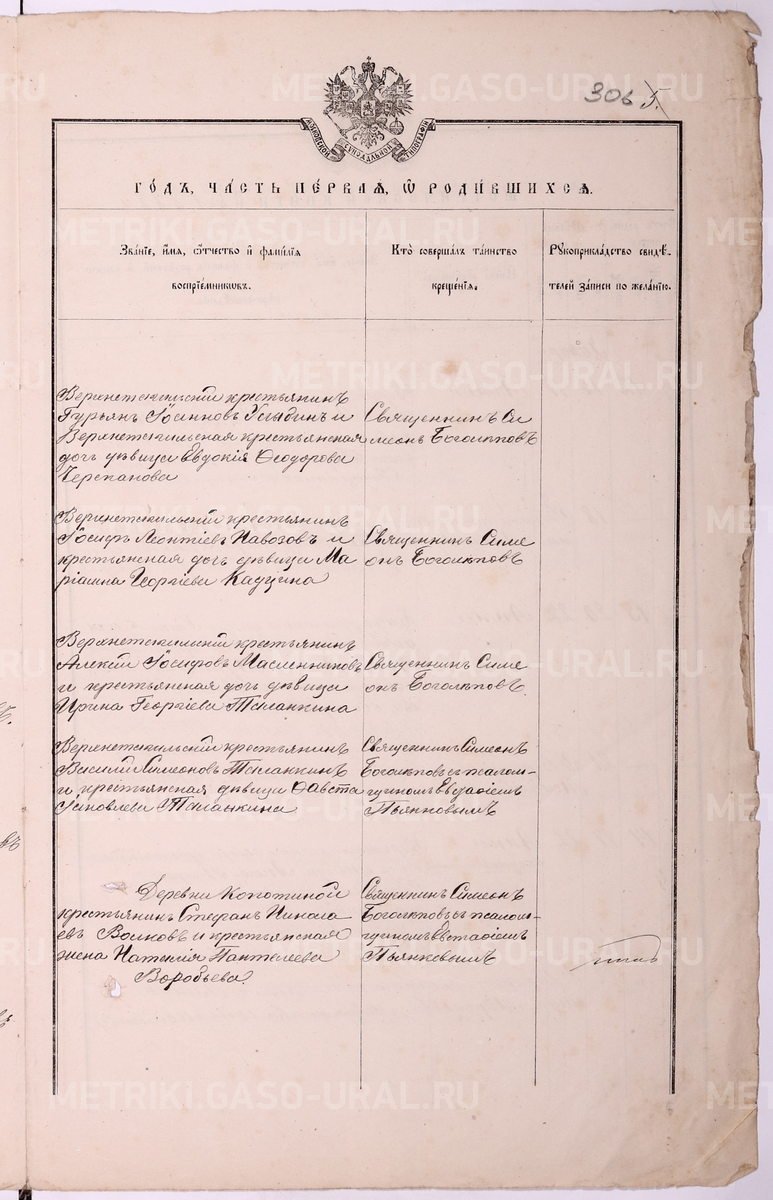 306 5.
МОСКОВСКОЙ СѴНОДАЛЬНОЙ ТИПОГРАФІИ
ГО́ДЪ, ЧА́СТЬ ПЕ́РВАЯ, Ѡ҆ РОДИ́ВШИХСЯ.
Зва́нїе, и҆́мя, ѻ҆́тчество и҆ фами́лїя
воспрїе́мникѡвъ.
Кто̀ соверша́лъ та́инство
креще́нїя.
Рꙋкоприкла́дство свидѣ́-
телей за́писи по жела́нїю.
Верхнетагильскій крестьянинъ
Гурьянъ Іоанновъ и
Верхнетагильская крестьянская
дочь дѣвица Евдокія Ѳеодорова
Черепанова
Священникъ Си
меонъ Боголѣповъ
Верхнетагильскій крестьянинъ
Іосифъ Леонтіевъ Навозовъ и
крестьянская дочь дѣвица Ма
ріамна Георгіева Кадцина
Священникъ Симе
онъ Боголѣповъ
Верхнетагильскій крестьянинъ
Алексій Іосифовъ Масленниковъ
и крестьянская дочь дѣвица
Ирина Георгіева Таланкина
Священникъ Симе
онъ Боголѣповъ.
Верхнетагильскій крестьянинъ
Василій Симеоновъ Таланкинъ
и крестьянская дѣвица Ѳавста
Іаковлева Таланкина
Священникъ Симеонъ
Боголѣповъ съ псалом-
щикомъ Евстаѳіемъ
Пьянковымъ
Деревни Копотиной
крестьянинъ Стефанъ Никола
евъ Волковъ и крестьянская
жена Наталія Пантелеева
Воробьева.
Священникъ Симеонъ
Боголѣповъ съ псалом-
щикомъ Евстаѳіемъ
Пьянковымъ
METRIKI.GASO-URAL.RU